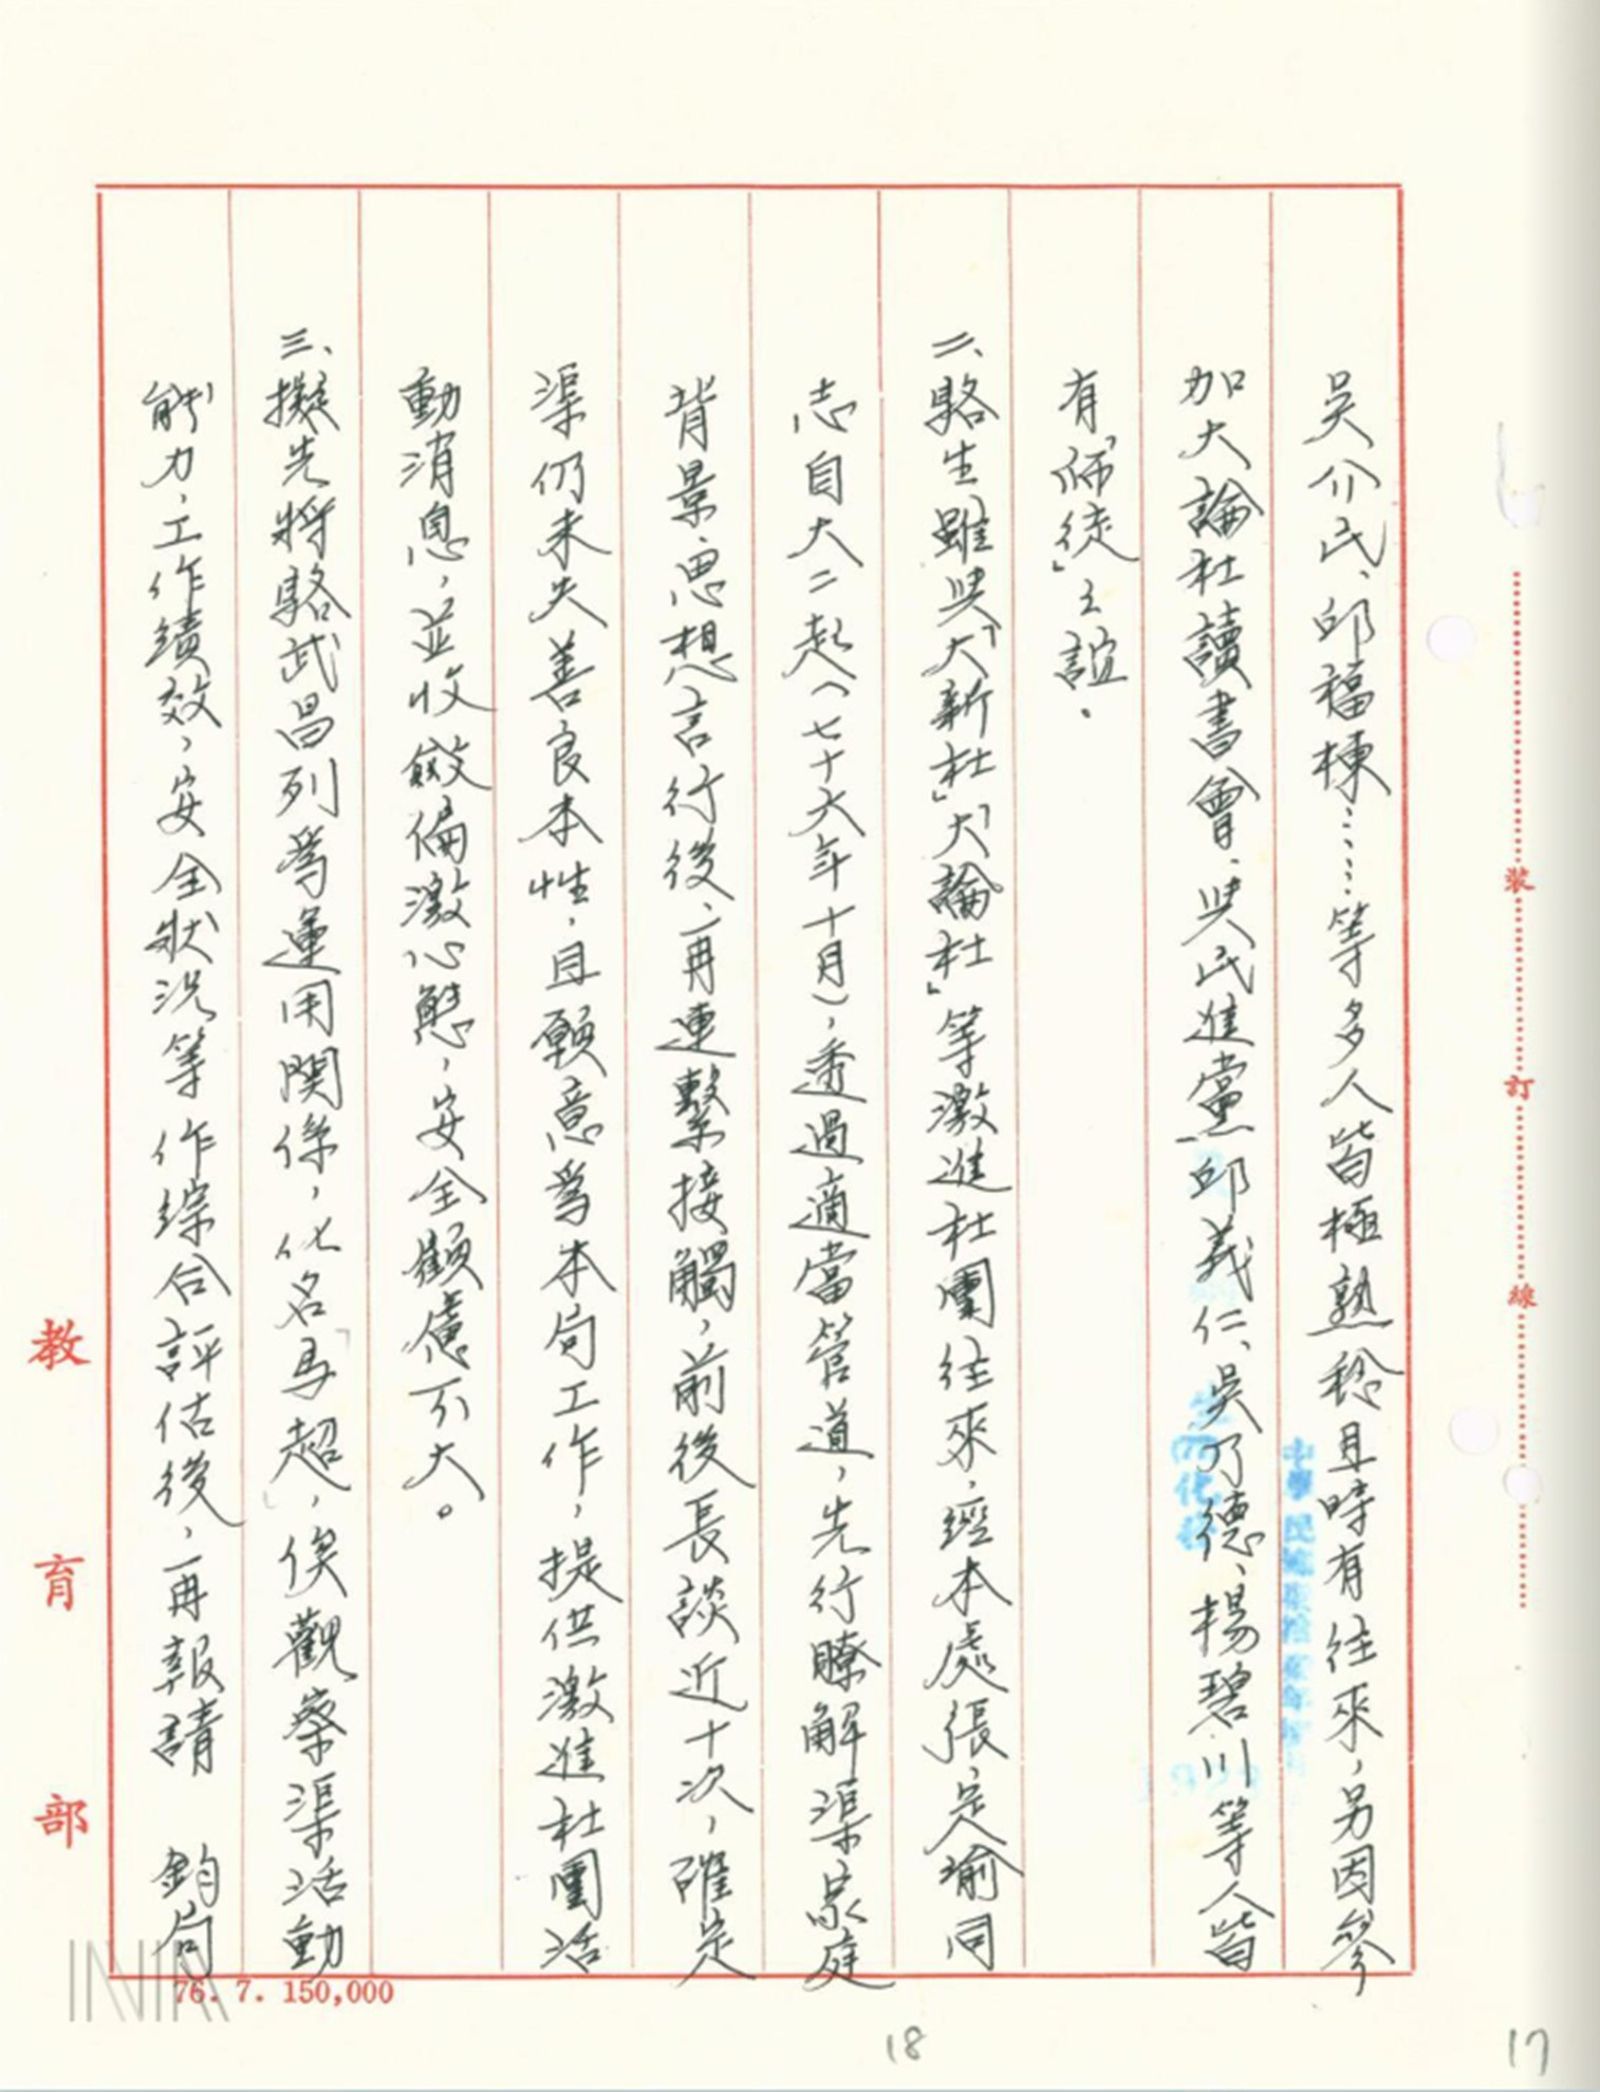 吳介民、邱福棟……等多人皆極熟稔且時有往來，另因參
加大論社讀書會、與民進黨邱義仁、吳乃德、楊碧川等人皆
有「師徒」之誼。
二、駱生雖與「大新社」「大論社」等激進社團往來，經本處張定瑜同
志自大二起（七十六年十月），透過適當管道，先行瞭解渠家庭
背景、思想言行後、再連繫接觸，前後長談近十次，確定
渠仍未失善良本性，且願意為本局工作，提供激進社團活
動消息，並收斂偏激心態，安全顧慮不大。
三、擬先將駱武昌列為運用關係，化名「馬超」，俟觀察渠活動
能力，工作績效，安全狀況等作綜合評估後，再報請　鈞局
裝
訂
線
教育部
76. 7. 150,000
18
17